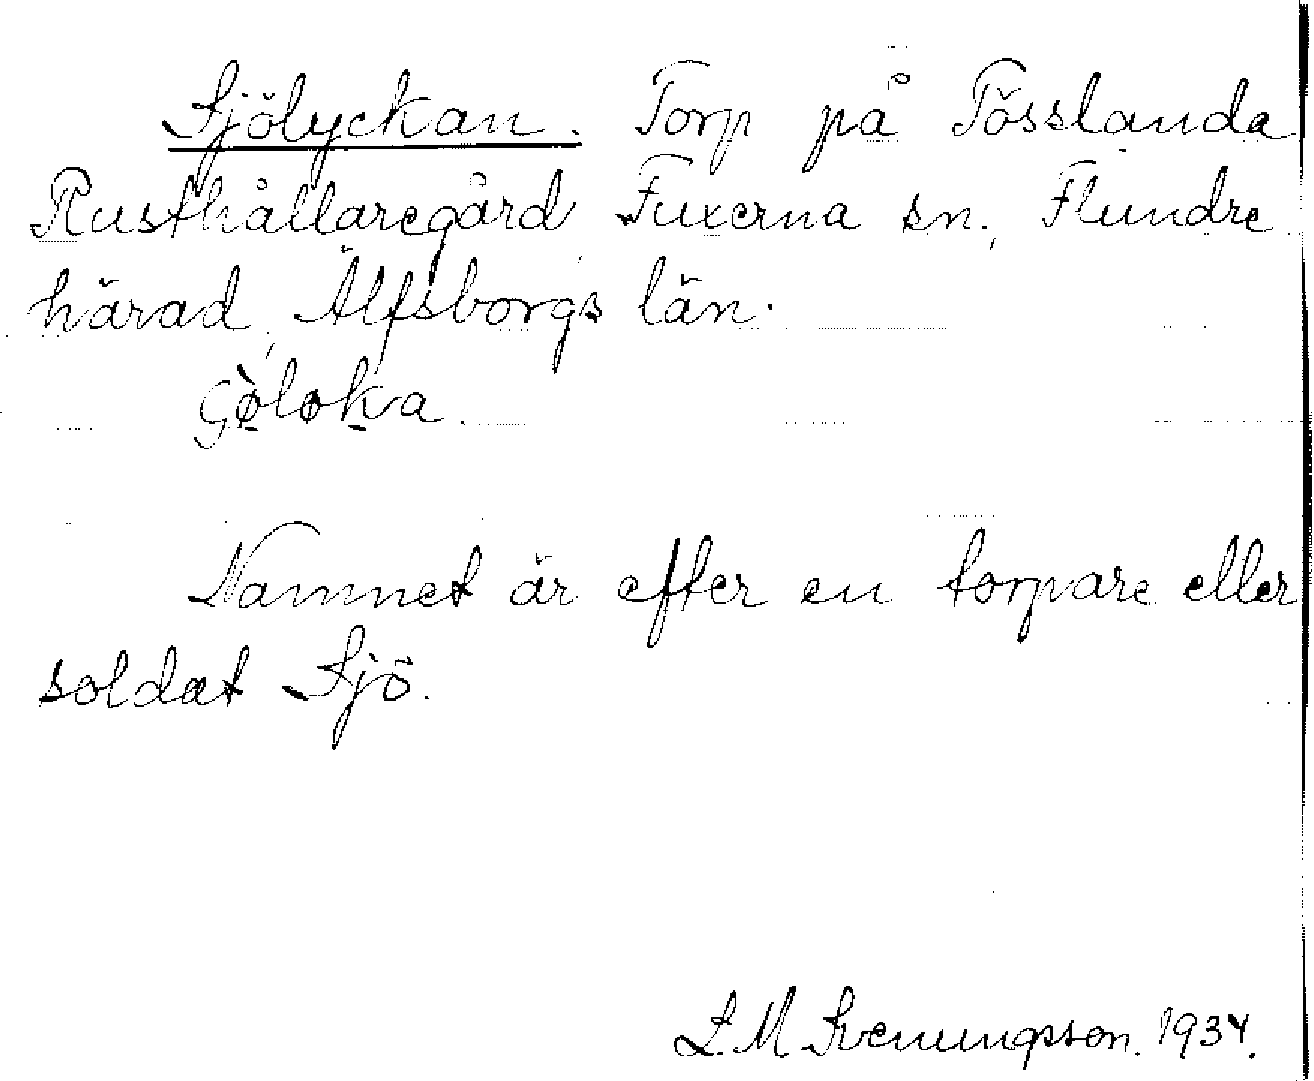 Sjölyckan. Torp på Tösslanda
Rusthållaregård Fuxerna sn., Flundre
härad, Älfsborgs län.
Gø̀løka.
Namnet är efter en torpare eller
soldat Sjö.
L. M. Svenungsson. 1934.